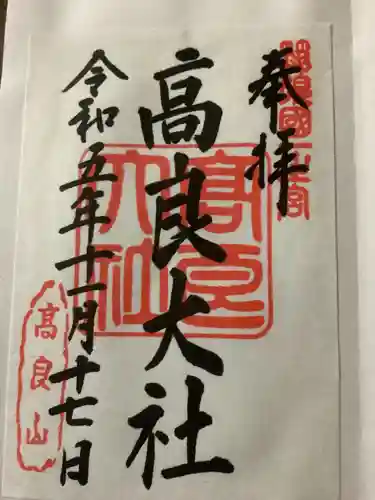 奉拝
筑後國一之宮
高良大社
髙良大社
令和五年十一月十七日
高良山